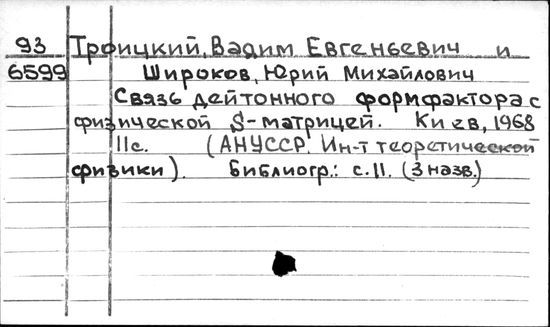 93 Троицкий, Вадим Евгеньевич и
6599 Широков, Юрий Михайлович
Связь дейтонного формфактора с
физической S-матрицей. Киев, 1968
11с. (АНУССР. Ин-т теоретической
физики). Библиогр.: с.11. (3 назв.)